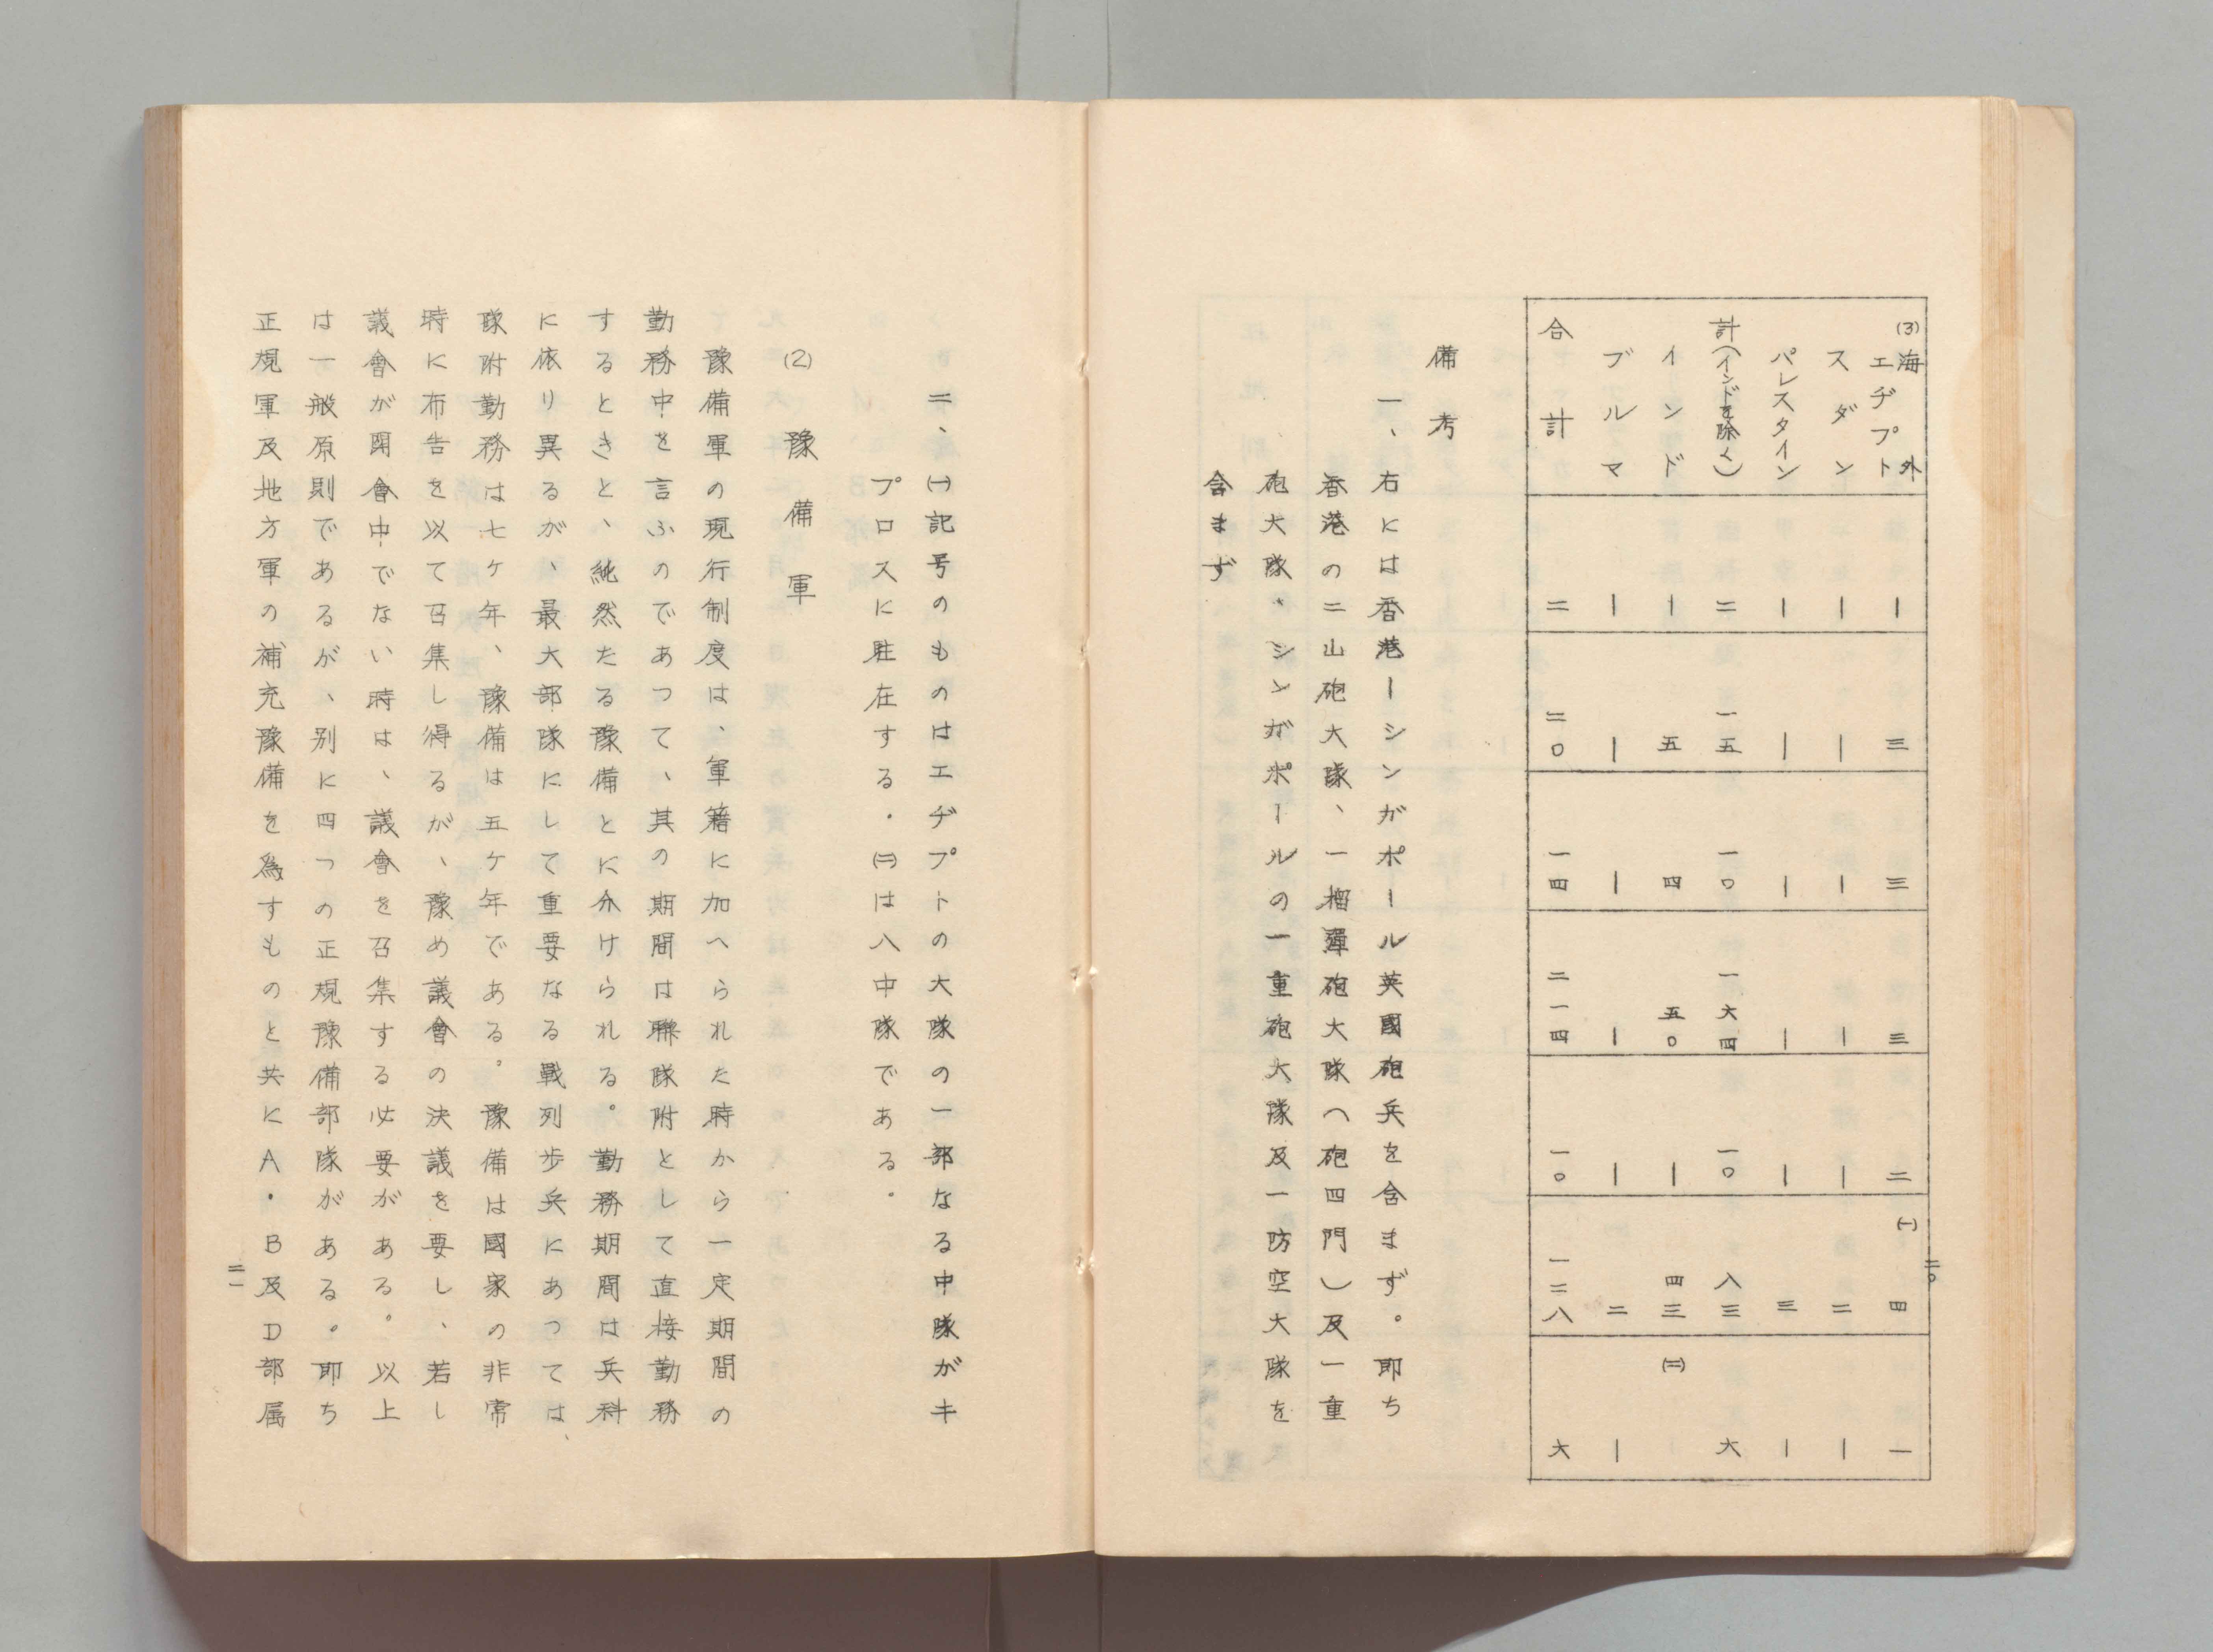 二〇
(3)海外
エヂプト ー 三 三 三 二 (一)四 一
スダン ー ー ー ー ー 二 ー
パレスタイン ー ー ー ー ー 三 ー
計(インドを除く) 二 一五 一〇 一六四 一〇 八三 六
インド ー 五 四 五〇 ー 四三 (二)
ブルマ ー ー ー ー ー 二 ー
合計 二 二〇 一四 二一四 一〇 一二八 六
備考
一、右には香港ーシンガポール英國砲兵を含まず。即ち
香港の二山砲大隊、一榴彈砲大隊(砲四門)及一重
砲大隊・シンガポールの一重砲大隊及一防空大隊を
含まず
二、(一)記号のものはエヂプトの大隊の一部なる中隊がキ
プロスに駐在する・(二)は八中隊である。
(2) 豫備軍
豫備軍の現行制度は、軍籍に加へられた時から一定期間の
勤務中を言ふのであつて、其の期間は聯隊附として直接勤務
するときと、純然たる豫備とに分けられる。勤務期間は兵科
に依り異るが、最大部隊にして重要なる戰列歩兵にあつては
隊附勤務は七ケ年、豫備は五ケ年である。豫備は國家の非常
時に布告を以て召集し得るが、豫め議會の決議を要し、若し
議會が開會中でない時は、議會を召集する必要がある。以上
は一般原則であるが、別に四つの正規豫備部隊がある。即ち
正規軍及地方軍の補充豫備を為すものと共にA・B及D部属
二一